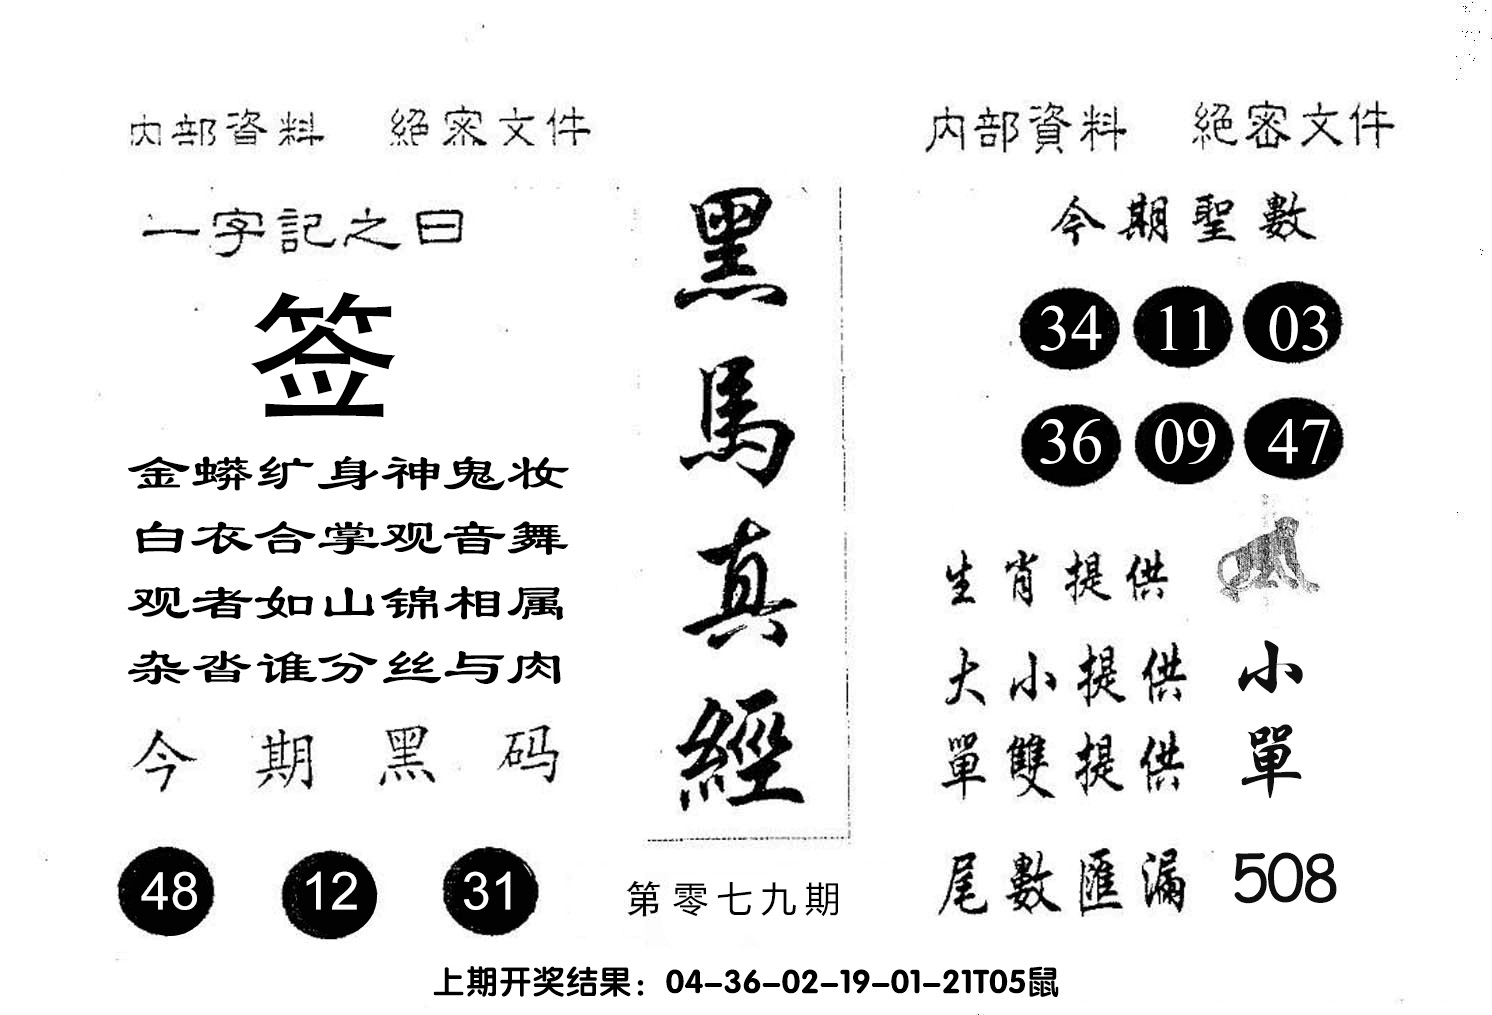 内部資料 絕密文件
一字記之曰
签
金蟒纩身神鬼妆
白衣合掌观音舞
观者如山锦相属
杂沓谁分丝与肉
今期黑码
48 12 31
黑馬真經
第零七九期
内部資料 絕密文件
今期聖數
34 11 03
36 09 47
生肖提供
大小提供 小
單雙提供 單
尾數匯漏 508
上期开奖结果：04-36-02-19-01-21T05鼠